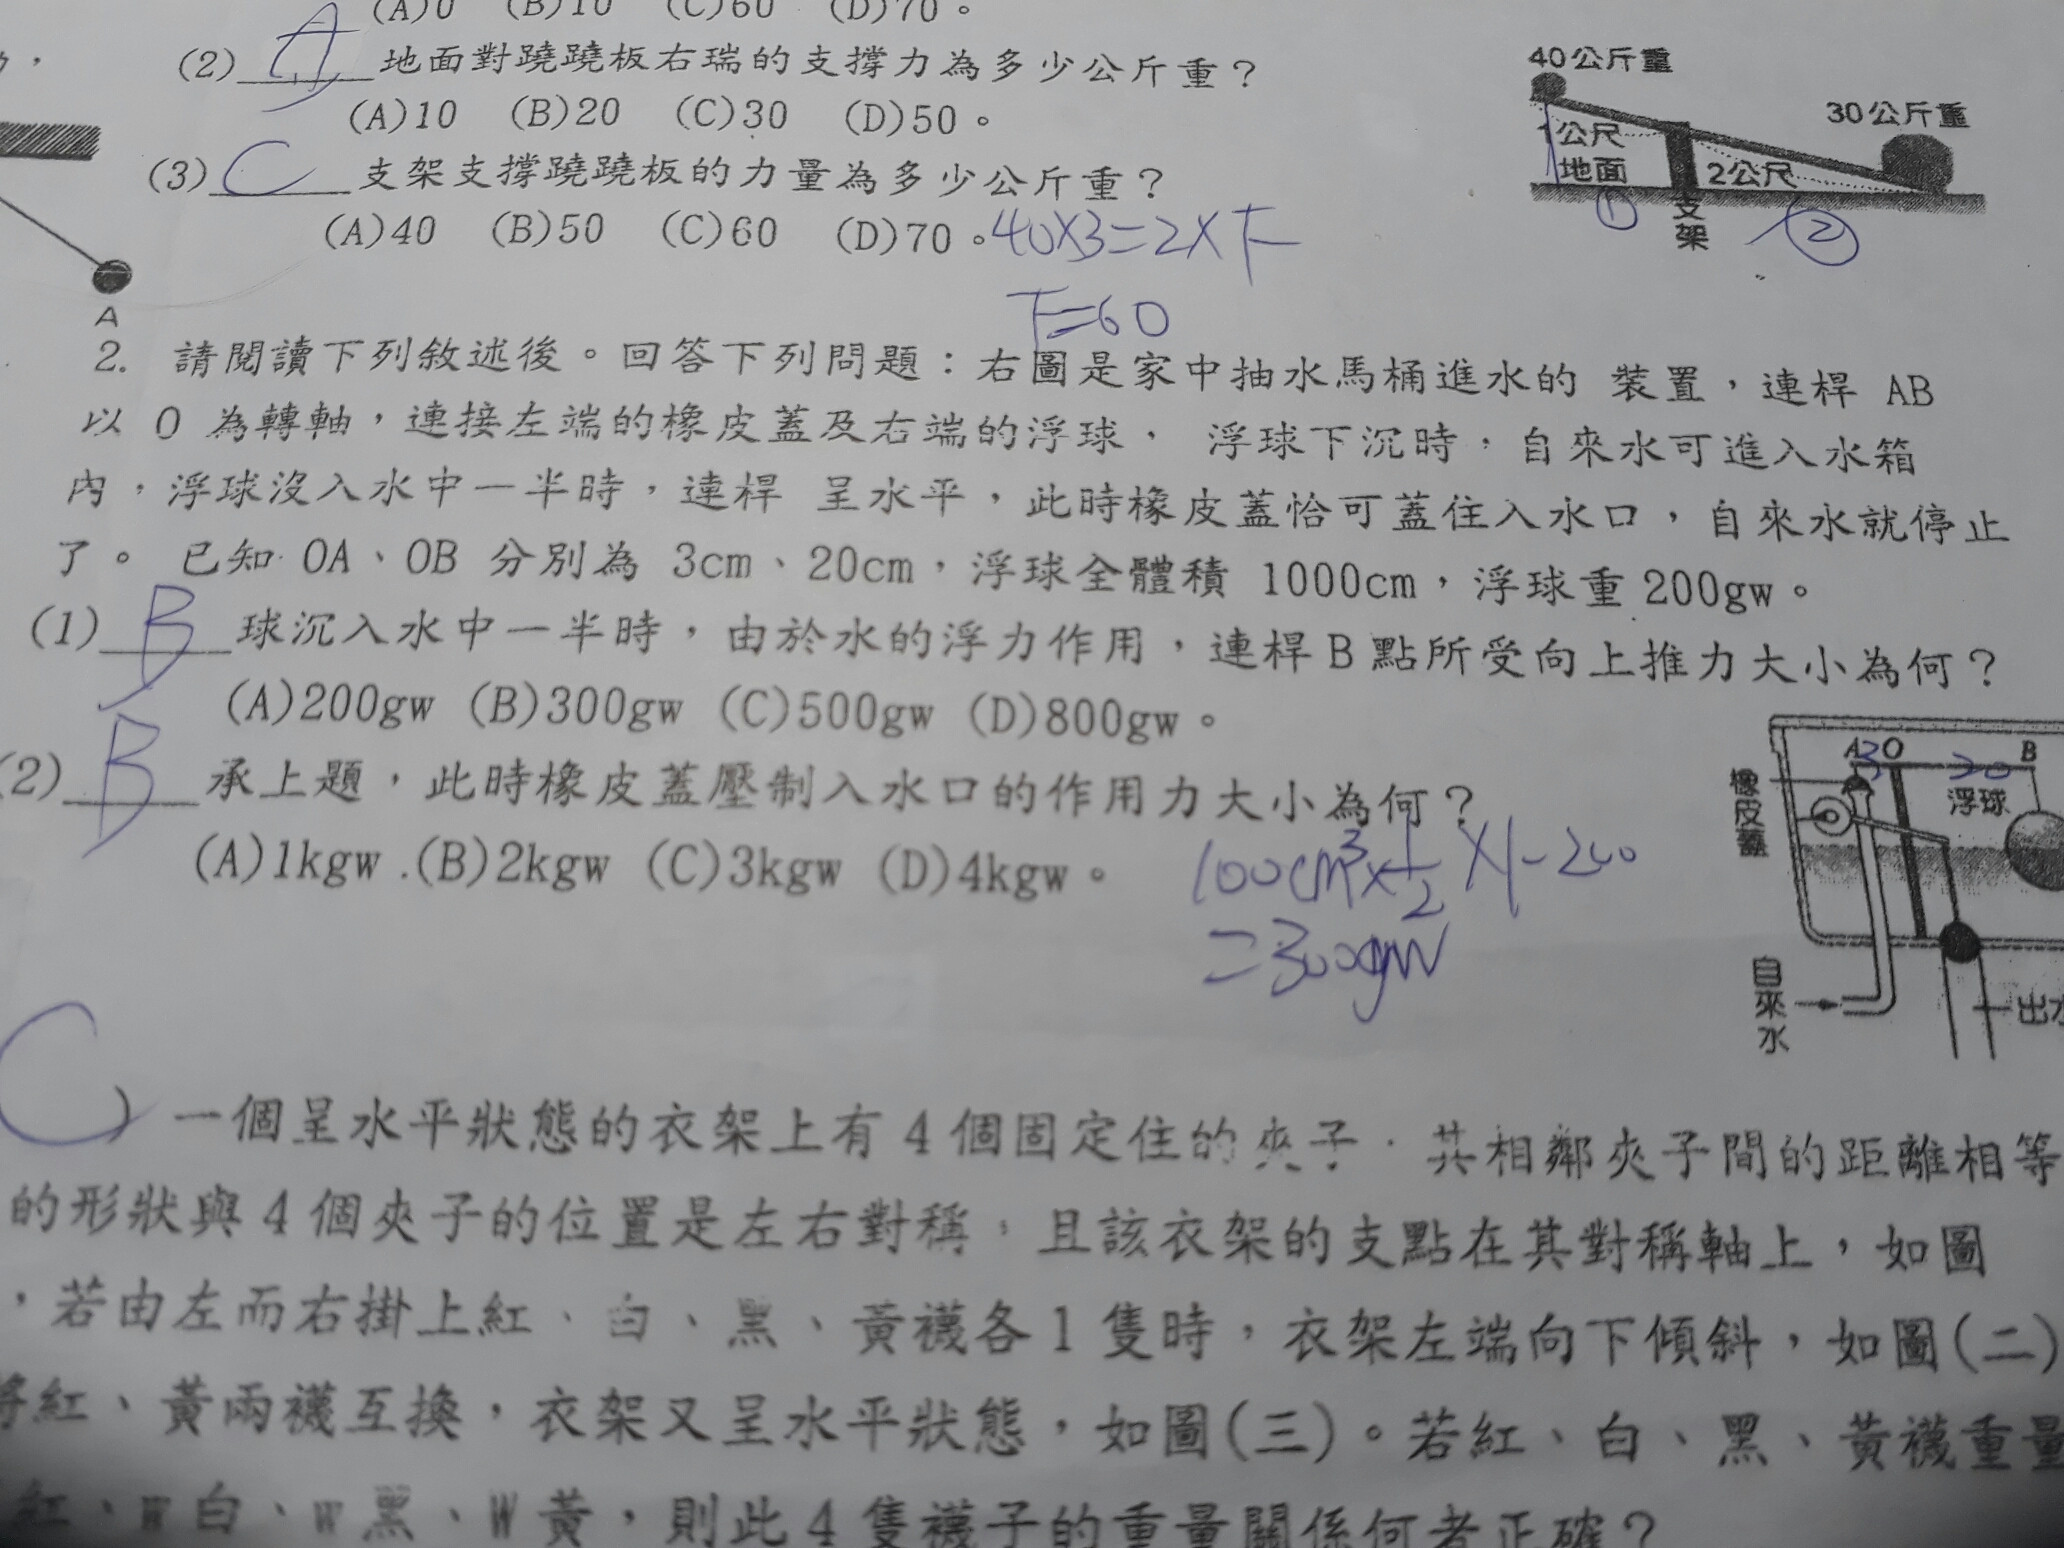 (A)0 (B)10 (C)60 (D)70。
(2) A 地面對蹺蹺板右瑞的支撐力為多少公斤重？
(A)10 (B)20 (C)30 (D)50。
(3) C 支架支撐蹺蹺板的力量為多少公斤重？
(A)40 (B)50 (C)60 (D)70。
40×3=2×F
F=60
40公斤重
30公斤重
1公尺
地面
2公尺
支架
①
②
A
2. 請閱讀下列敘述後。回答下列問題：右圖是家中抽水馬桶進水的 裝置，連桿 AB
以 O 為轉軸，連接左端的橡皮蓋及右端的浮球， 浮球下沉時，自來水可進入水箱
內，浮球沒入水中一半時，連桿 呈水平，此時橡皮蓋恰可蓋住入水口，自來水就停止
了。 已知 OA、OB 分別為 3cm、20cm，浮球全體積 1000cm，浮球重 200gw。
(1) B 球沉入水中一半時，由於水的浮力作用，連桿 B 點所受向上推力大小為何？
(A)200gw (B)300gw (C)500gw (D)800gw。
(2) B 承上題，此時橡皮蓋壓制入水口的作用力大小為何？
(A)1kgw (B)2kgw (C)3kgw (D)4kgw。
100cm³×1/2×1-200
=300gw
A O B
3 20
橡皮蓋
浮球
自來水
出水
C
)一個呈水平狀態的衣架上有 4 個固定住的夾子，其相鄰夾子間的距離相等
的形狀與 4 個夾子的位置是左右對稱，且該衣架的支點在其對稱軸上，如圖
，若由左而右掛上紅、白、黑、黃襪各 1 隻時，衣架左端向下傾斜，如圖(二)
將紅、黃兩襪互換，衣架又呈水平狀態，如圖(三)。若紅、白、黑、黃襪重量
紅、W白、W黑、W黃，則此 4 隻襪子的重量關係何者正確？